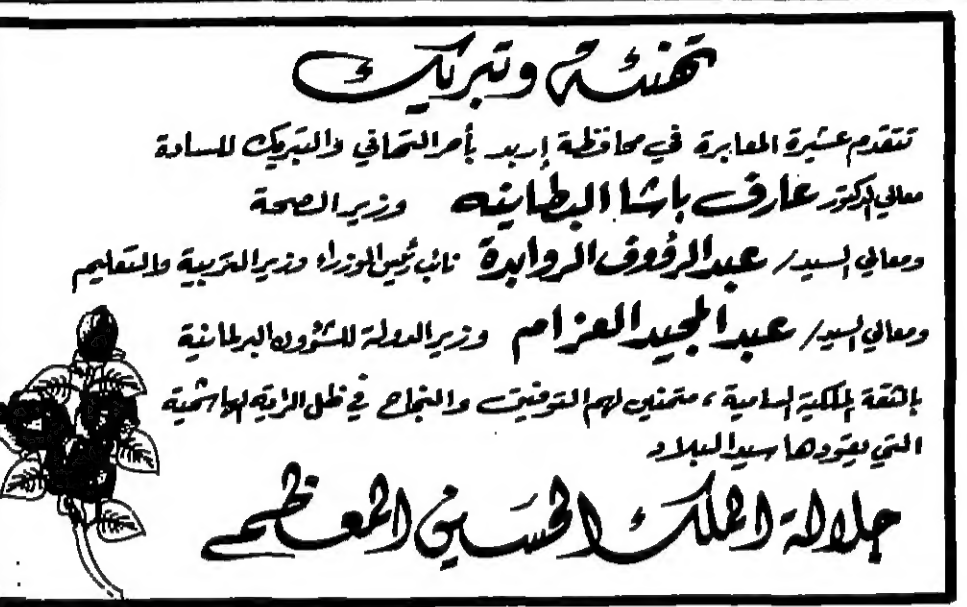 تهنئة وتبريك
تتقدم عشيرة المعابرة في محافظة إربد بأحر التهاني والتبريك للسادة
معالي الدكتور عارف باشا البطاينه وزير الصحة
ومعالي السيد/ عبدالرؤوف الروابدة نائب رئيس الوزراء وزير التربية والتعليم
ومعالي السيد/ عبدالمجيد العزام وزير الدولة للشؤون البرلمانية
بالثقة الملكية السامية، متمنين لهم التوفيق والنجاح في ظل الراية الهاشمية
التي يقودها سيد البلاد
جلالة الملك الحسين المعظم